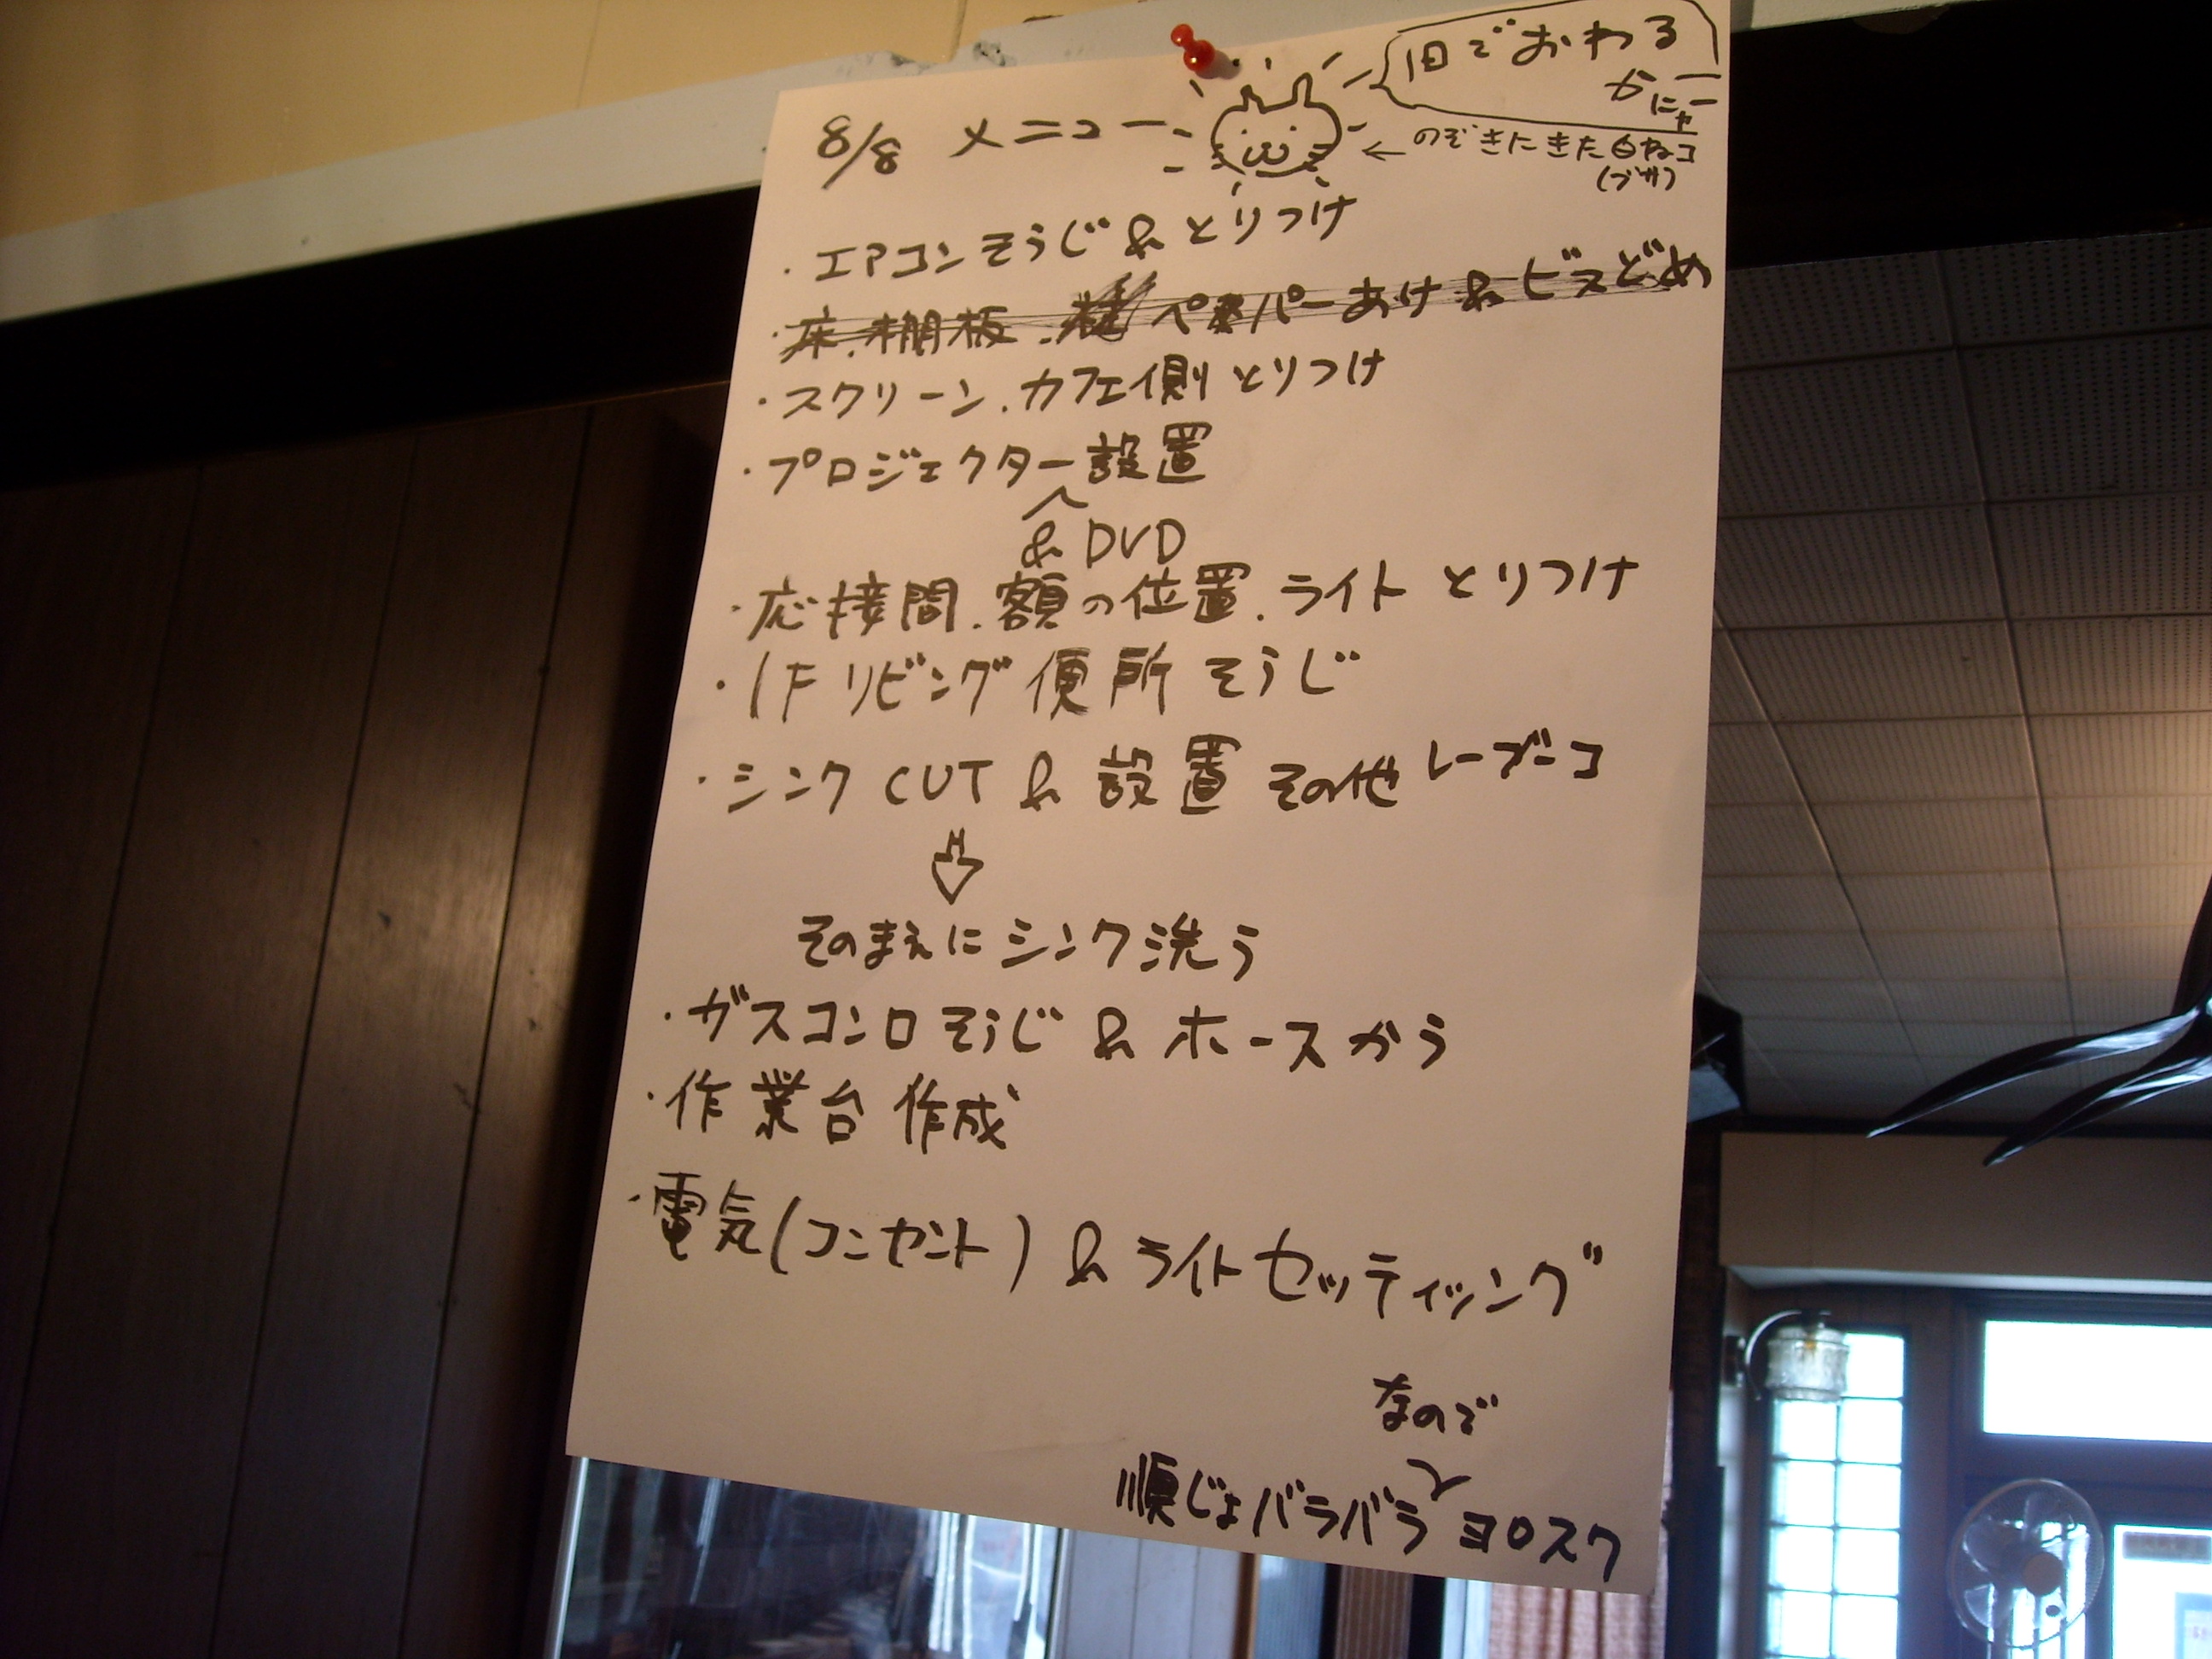 8/8 メニュー
1日でおわる
かにゃー
←のぞきにきた白ねコ
(ブサ)
・エアコンそうじ&とりつけ
・床.棚板.ペーパーあけ&ビスどめ
・スクリーン.カフェ側とりつけ
・プロジェクター設置
&DVD
・応接間.額の位置.ライトとりつけ
・1Fリビング便所そうじ
・シンクCUT&設置その他レーブーコ
そのまえにシンク洗う
・ガスコンロそうじ&ホースかう
・作業台作成
・電気(コンセント)&ライトセッティッング
なので
順じょバラバラヨロスク